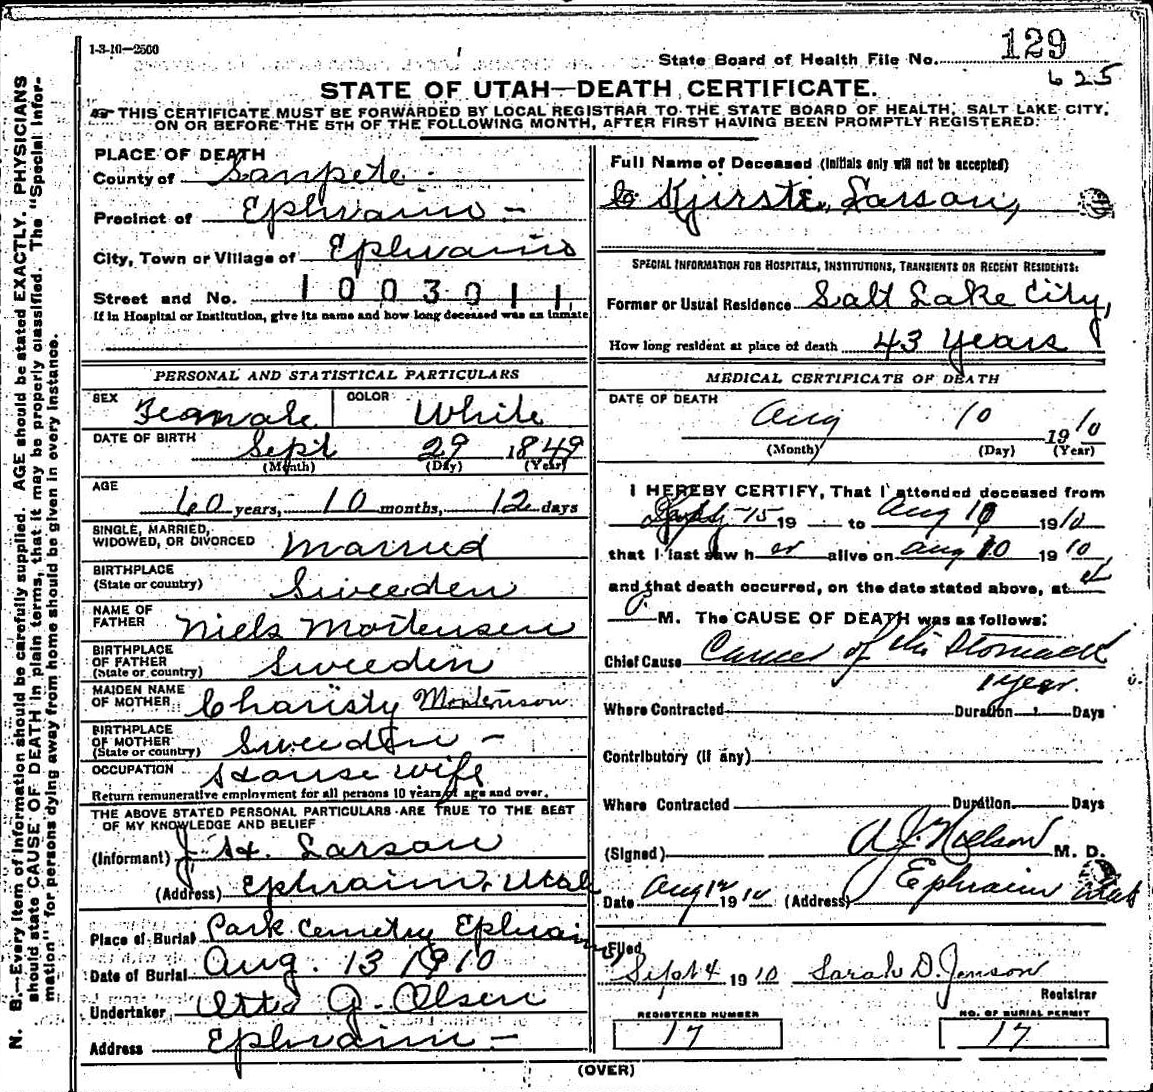 1-3-10—2500
State Board of Health File No. 129
625
STATE OF UTAH—DEATH CERTIFICATE.
THIS CERTIFICATE MUST BE FORWARDED BY LOCAL REGISTRAR TO THE STATE BOARD OF HEALTH, SALT LAKE CITY,
ON OR BEFORE THE 5TH OF THE FOLLOWING MONTH, AFTER FIRST HAVING BEEN PROMPTLY REGISTERED.
PLACE OF DEATH
County of Sanpete
Precinct of Ephraim -
City, Town or Village of Ephraim
Street and No. 1003011
If in Hospital or Institution, give its name and how long deceased was an inmate
PERSONAL AND STATISTICAL PARTICULARS
SEX Feamale COLOR White
DATE OF BIRTH Sept 29 1849
(Month) (Day) (Year)
AGE 60 years, 10 months, 12 days
SINGLE, MARRIED,
WIDOWED, OR DIVORCED Married
BIRTHPLACE
(State or country) Sweeden
NAME OF
FATHER Niels Mortensen
BIRTHPLACE
OF FATHER
(State or country) Sweeden
MAIDEN NAME
OF MOTHER Charisty Mortenson
BIRTHPLACE
OF MOTHER
(State or country) Sweeden -
OCCUPATION House wife
Return remunerative employment for all persons 10 years of age and over.
THE ABOVE STATED PERSONAL PARTICULARS ARE TRUE TO THE BEST
OF MY KNOWLEDGE AND BELIEF
(Informant) J. H. Larson
(Address) Ephraim, Utah
Place of Burial Park Cemetry Ephraim
Date of Burial Aug. 13 1910
Undertaker Otto J. Olsen
Address Ephraim -
Full Name of Deceased (Initials only will not be accepted)
Kjirste Larson,
SPECIAL INFORMATION FOR HOSPITALS, INSTITUTIONS, TRANSIENTS OR RECENT RESIDENTS:
Former or Usual Residence Salt Lake City,
How long resident at place of death 43 Years
MEDICAL CERTIFICATE OF DEATH
DATE OF DEATH
Aug 10 1910
(Month) (Day) (Year)
I HEREBY CERTIFY, That I attended deceased from
15 19 to Aug 10 1910
that I last saw her alive on Aug 10 1910,
and that death occurred, on the date stated above, at
P. M. The CAUSE OF DEATH was as follows:
Chief Cause Cancer of the Stomach
1 year.
Where Contracted Duration Days
Contributory (if any)
Where Contracted Duration Days
(Signed) A. J. Nielson M. D.
Date Aug 12 1910 (Address) Ephraim Utah
Filed
Sept 4 1910 Sarah D. Jenson
Registrar
REGISTERED NUMBER
17
NO. OF BURIAL PERMIT
17
(OVER)
N. B.—Every item of information should be carefully supplied. AGE should be stated EXACTLY. PHYSICIANS
should state CAUSE OF DEATH in plain terms, that it may be properly classified. The "Special Infor-
mation" for persons dying away from home should be given in every instance.